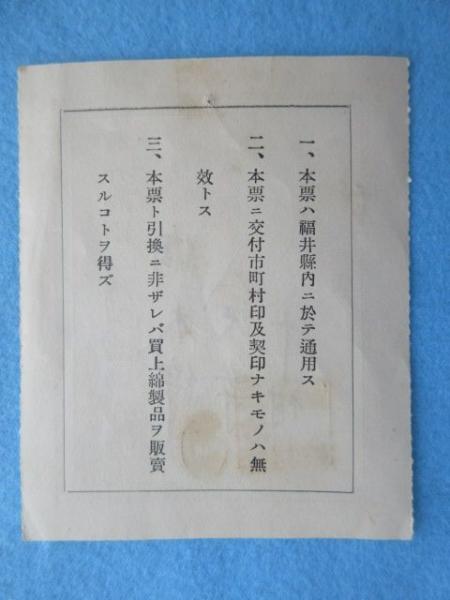 一、本票ハ福井縣內ニ於テ通用ス
二、本票ニ交付市町村印及契印ナキモノハ無
效トス
三、本票ト引換ニ非ザレバ買上綿製品ヲ販賣
スルコトヲ得ズ